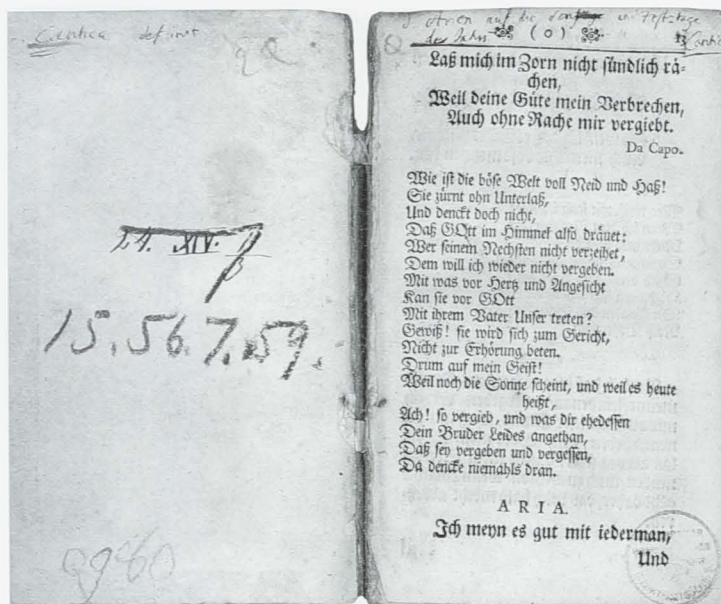 Cantica
24. XIV.
15. 56. 7. 59.
Arien auf die
( o )
Laß mich im Zorn nicht sündlich rä-
chen,
Weil deine Güte mein Verbrechen,
Auch ohne Rache mir vergiebt.
Da Capo.
Wie ist die böse Welt voll Neid und Haß!
Sie zürnt ohn Unterlaß,
Und denckt doch nicht,
Daß GOtt im Himmel also dräuet:
Wer seinem Nechsten nicht verzeihet,
Dem will ich wieder nicht vergeben.
Mit was vor Hertz und Angesicht
Kan sie vor GOtt
Mit ihrem Vater Unser treten?
Gewiß! sie wird sich zum Gericht,
Nicht zur Erhörung beten.
Drum auf mein Geist!
Weil noch die Sonne scheint, und weil es heute
heißt,
Ach! so vergieb, und was dir ehedessen
Dein Bruder Leides angethan,
Daß sey vergeben und vergessen,
Da dencke niemahls dran.
ARIA.
Ich meyn es gut mit iederman,
Und